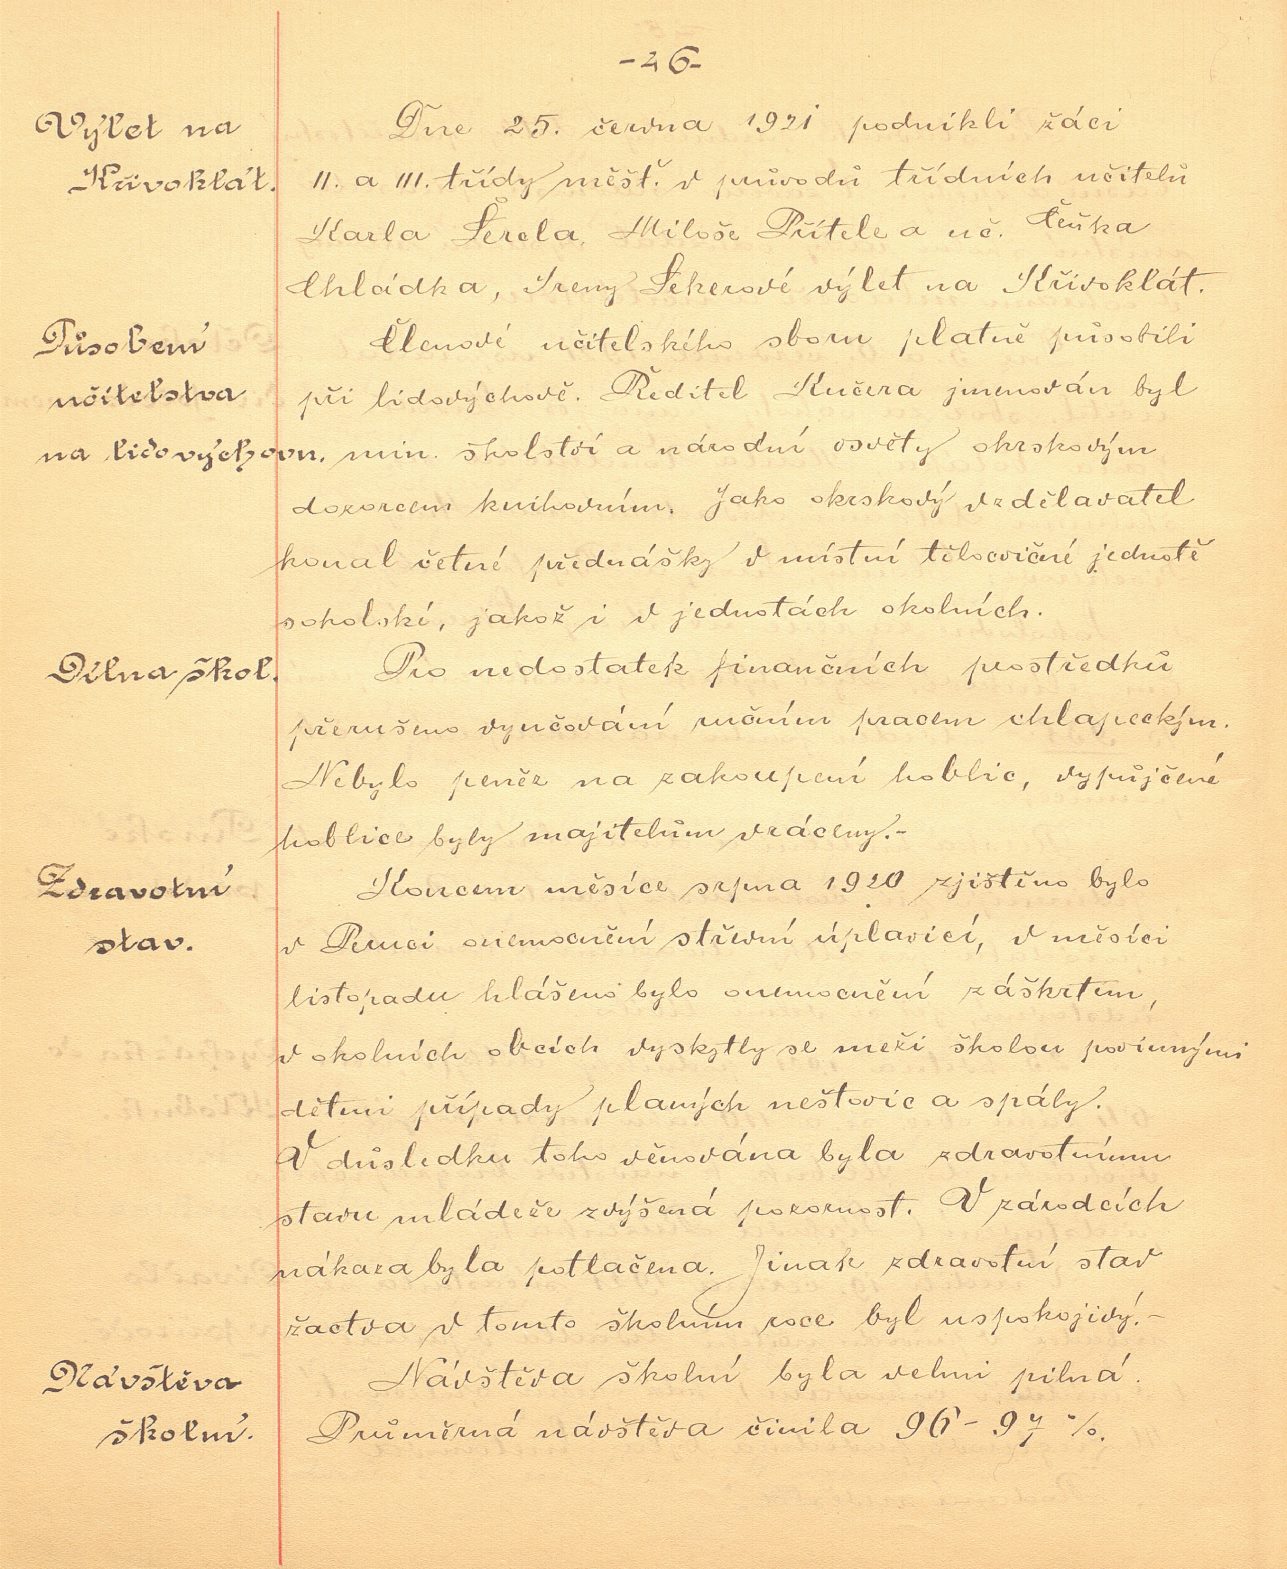 -26-
Výlet na
Křivoklát.
Dne 25. června 1921 podnikli žáci
II. a III. třídy měšť. v průvodů třídních učitelů
Karla Šerela, Miloše Přítele a uč. Čeňka
Chládka, Ireny Šekerové výlet na Křivoklát.
Působení
učitelstva
na lidovýchovu.
Členové učitelského sboru platně působili
při lidovýchově. Ředitel Kučera jmenován byl
min. školství a národní osvěty okrskovým
dozorcem knihovním. Jako okrskový vzdělavatel
konal četné přednášky v místní tělocvičné jednotě
sokolské, jakož i v jednotách okolních.
Dílna škol.
Pro nedostatek finančních prostředků
přerušeno vyučování ručním pracem chlapeckým.
Nebylo peněz na zakoupení hoblic, vypůjčené
hoblice byly majitelům vráceny.-
Zdravotní
stav.
Koncem měsíce srpna 1920 zjištěno bylo
v Peruci onemocnění střevní úplavicí, v měsíci
listopadu hlášeno bylo onemocnění záškrtem,
v okolních obcích vyskytly se mezi školou povinnými
dětmi případy planých neštovic a spály.
V důsledku toho věnována byla zdravotnímu
stavu mládeže zvýšená pozornost. V zárodcích
nákaza byla potlačena. Jinak zdravotní stav
žactva v tomto školním roce byl uspokojivý.-
Návštěva
školní.
Návštěva školní byla velmi pilná.
Průměrná návštěva činila 96 - 97 %.